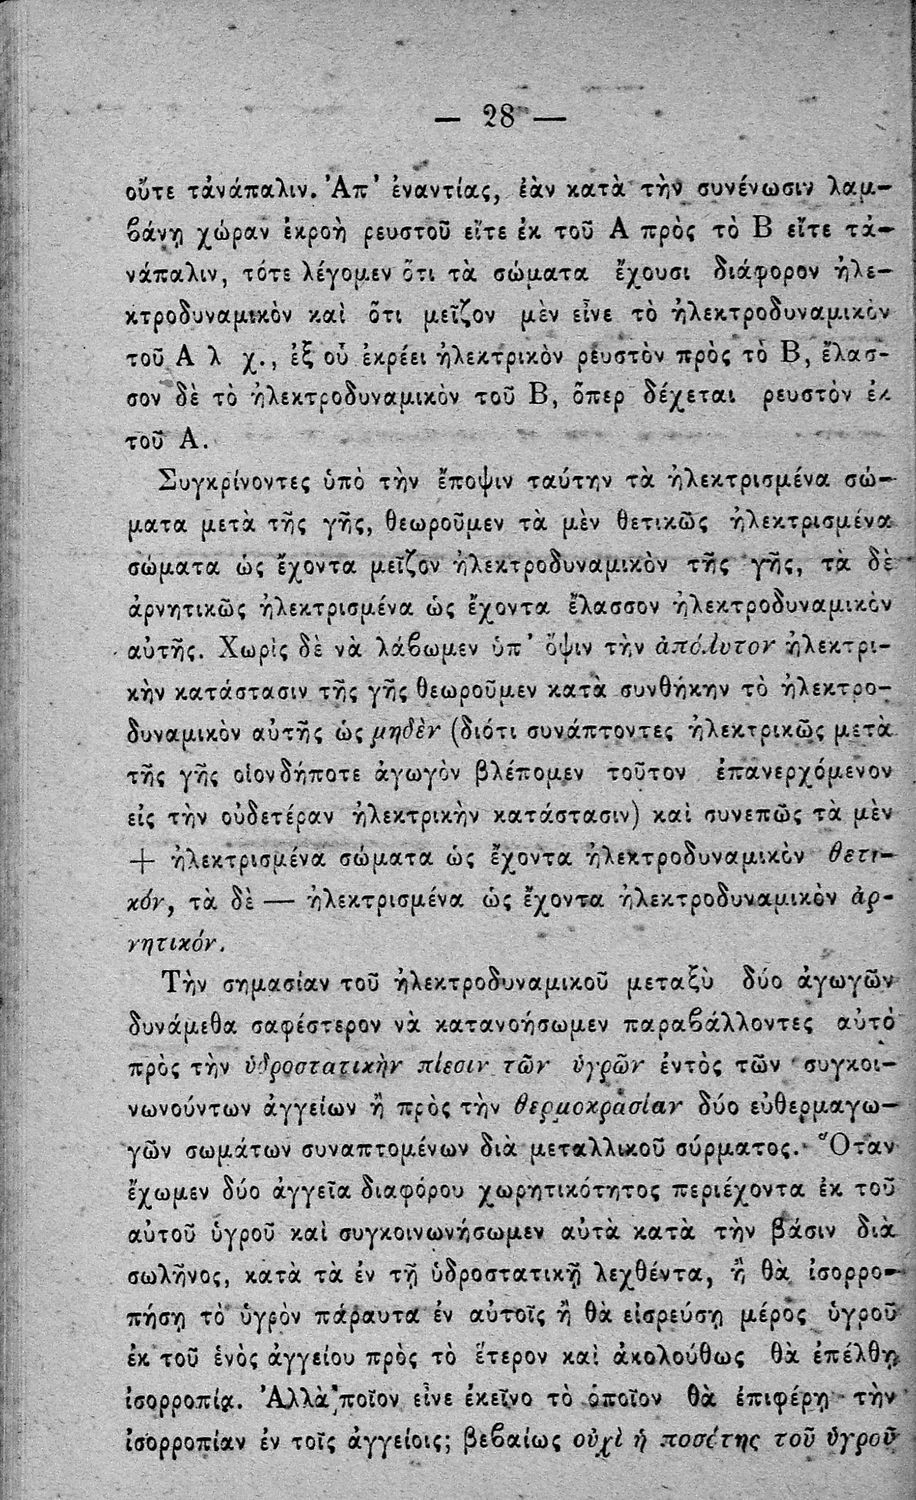 — 28 —
οὔτε τἀνάπαλιν. Ἀπ' ἐναντίας, ἐὰν κατὰ τὴν συνένωσιν λαμ-
βάνῃ χώραν ἐκροὴ ρευστοῦ εἴτε ἐκ τοῦ Α πρὸς τὸ Β εἴτε τἀ-
νάπαλιν, τότε λέγομεν ὅτι τὰ σώματα ἔχουσι διάφορον ἠλε-
κτροδυναμικὸν καὶ ὅτι μεῖζον μὲν εἶνε τὸ ἠλεκτροδυναμικὸν
τοῦ Α λ χ., ἐξ οὗ ἐκρέει ἠλεκτρικὸν ρευστὸν πρὸς τὸ Β, ἔλασ-
σον δὲ τὸ ἠλεκτροδυναμικὸν τοῦ Β, ὅπερ δέχεται ρευστὸν ἐκ
τοῦ Α.
Συγκρίνοντες ὑπὸ τὴν ἔποψιν ταύτην τὰ ἠλεκτρισμένα σώ-
ματα μετὰ τῆς γῆς, θεωροῦμεν τὰ μὲν θετικῶς ἠλεκτρισμένα
σώματα ὡς ἔχοντα μεῖζον ἠλεκτροδυναμικὸν τῆς γῆς, τὰ δὲ
ἀρνητικῶς ἠλεκτρισμένα ὡς ἔχοντα ἔλασσον ἠλεκτροδυναμικὸν
αὐτῆς. Χωρὶς δὲ νὰ λάβωμεν ὑπ' ὄψιν τὴν ἀπόλυτον ἠλεκτρι-
κὴν κατάστασιν τῆς γῆς θεωροῦμεν κατὰ συνθήκην τὸ ἠλεκτρο-
δυναμικὸν αὐτῆς ὡς μηδὲν (διότι συνάπτοντες ἠλεκτρικῶς μετὰ
τῆς γῆς οἱονδήποτε ἀγωγὸν βλέπομεν τοῦτον ἐπανερχόμενον
εἰς τὴν οὐδετέραν ἠλεκτρικὴν κατάστασιν) καὶ συνεπῶς τὰ μὲν
+ ἠλεκτρισμένα σώματα ὡς ἔχοντα ἠλεκτροδυναμικὸν θετι-
κόν, τὰ δὲ — ἠλεκτρισμένα ὡς ἔχοντα ἠλεκτροδυναμικὸν ἀρ-
νητικόν.
Τὴν σημασίαν τοῦ ἠλεκτροδυναμικοῦ μεταξὺ δύο ἀγωγῶν
δυνάμεθα σαφέστερον νὰ κατανοήσωμεν παραβάλλοντες αὐτὸ
πρὸς τὴν ὑδροστατικὴν πίεσιν τῶν ὑγρῶν ἐντὸς τῶν συγκοι-
νωνούντων ἀγγείων ἢ πρὸς τὴν θερμοκρασίαν δύο εὐθερμαγω-
γῶν σωμάτων συναπτομένων διὰ μεταλλικοῦ σύρματος. Ὅταν
ἔχωμεν δύο ἀγγεῖα διαφόρου χωρητικότητος περιέχοντα ἐκ τοῦ
αὐτοῦ ὑγροῦ καὶ συγκοινωνήσωμεν αὐτὰ κατὰ τὴν βάσιν διὰ
σωλῆνος, κατὰ τὰ ἐν τῇ ὑδροστατικῇ λεχθέντα, ἢ θὰ ἰσορρο-
πήσῃ τὸ ὑγρὸν πάραυτα ἐν αὐτοῖς ἢ θὰ εἰσρεύσῃ μέρος ὑγροῦ
ἐκ τοῦ ἑνὸς ἀγγείου πρὸς τὸ ἕτερον καὶ ἀκολούθως θὰ ἐπέλθῃ
ἰσορροπία. Ἀλλὰ ποῖον εἶνε ἐκεῖνο τὸ ὁποῖον θὰ ἐπιφέρῃ τὴν
ἰσορροπίαν ἐν τοῖς ἀγγείοις; βεβαίως οὐχὶ ἡ ποσότης τοῦ ὑγροῦ